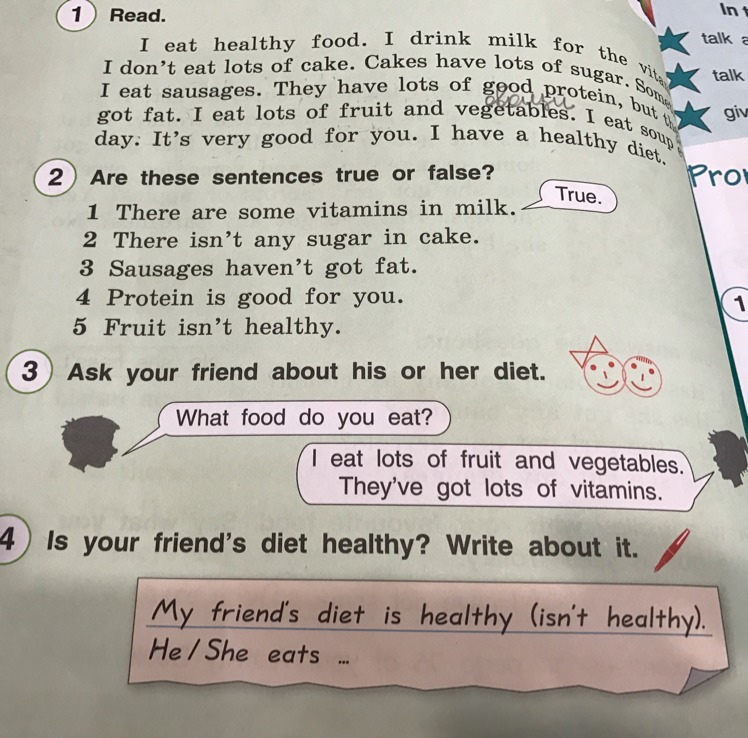 1 Read.
I eat healthy food. I drink milk for the
I don't eat lots of cake. Cakes have lots of sugar.
I eat sausages. They have lots of good protein, but
got fat. I eat lots of fruit and vegetables. I eat soup
day. It's very good for you. I have a healthy diet.
2 Are these sentences true or false?
True.
1 There are some vitamins in milk.
2 There isn't any sugar in cake.
3 Sausages haven't got fat.
4 Protein is good for you.
5 Fruit isn't healthy.
3 Ask your friend about his or her diet.
What food do you eat?
I eat lots of fruit and vegetables.
They've got lots of vitamins.
4 Is your friend's diet healthy? Write about it.
My friend's diet is healthy (isn't healthy).
He/She eats ...
In
talk
talk
1